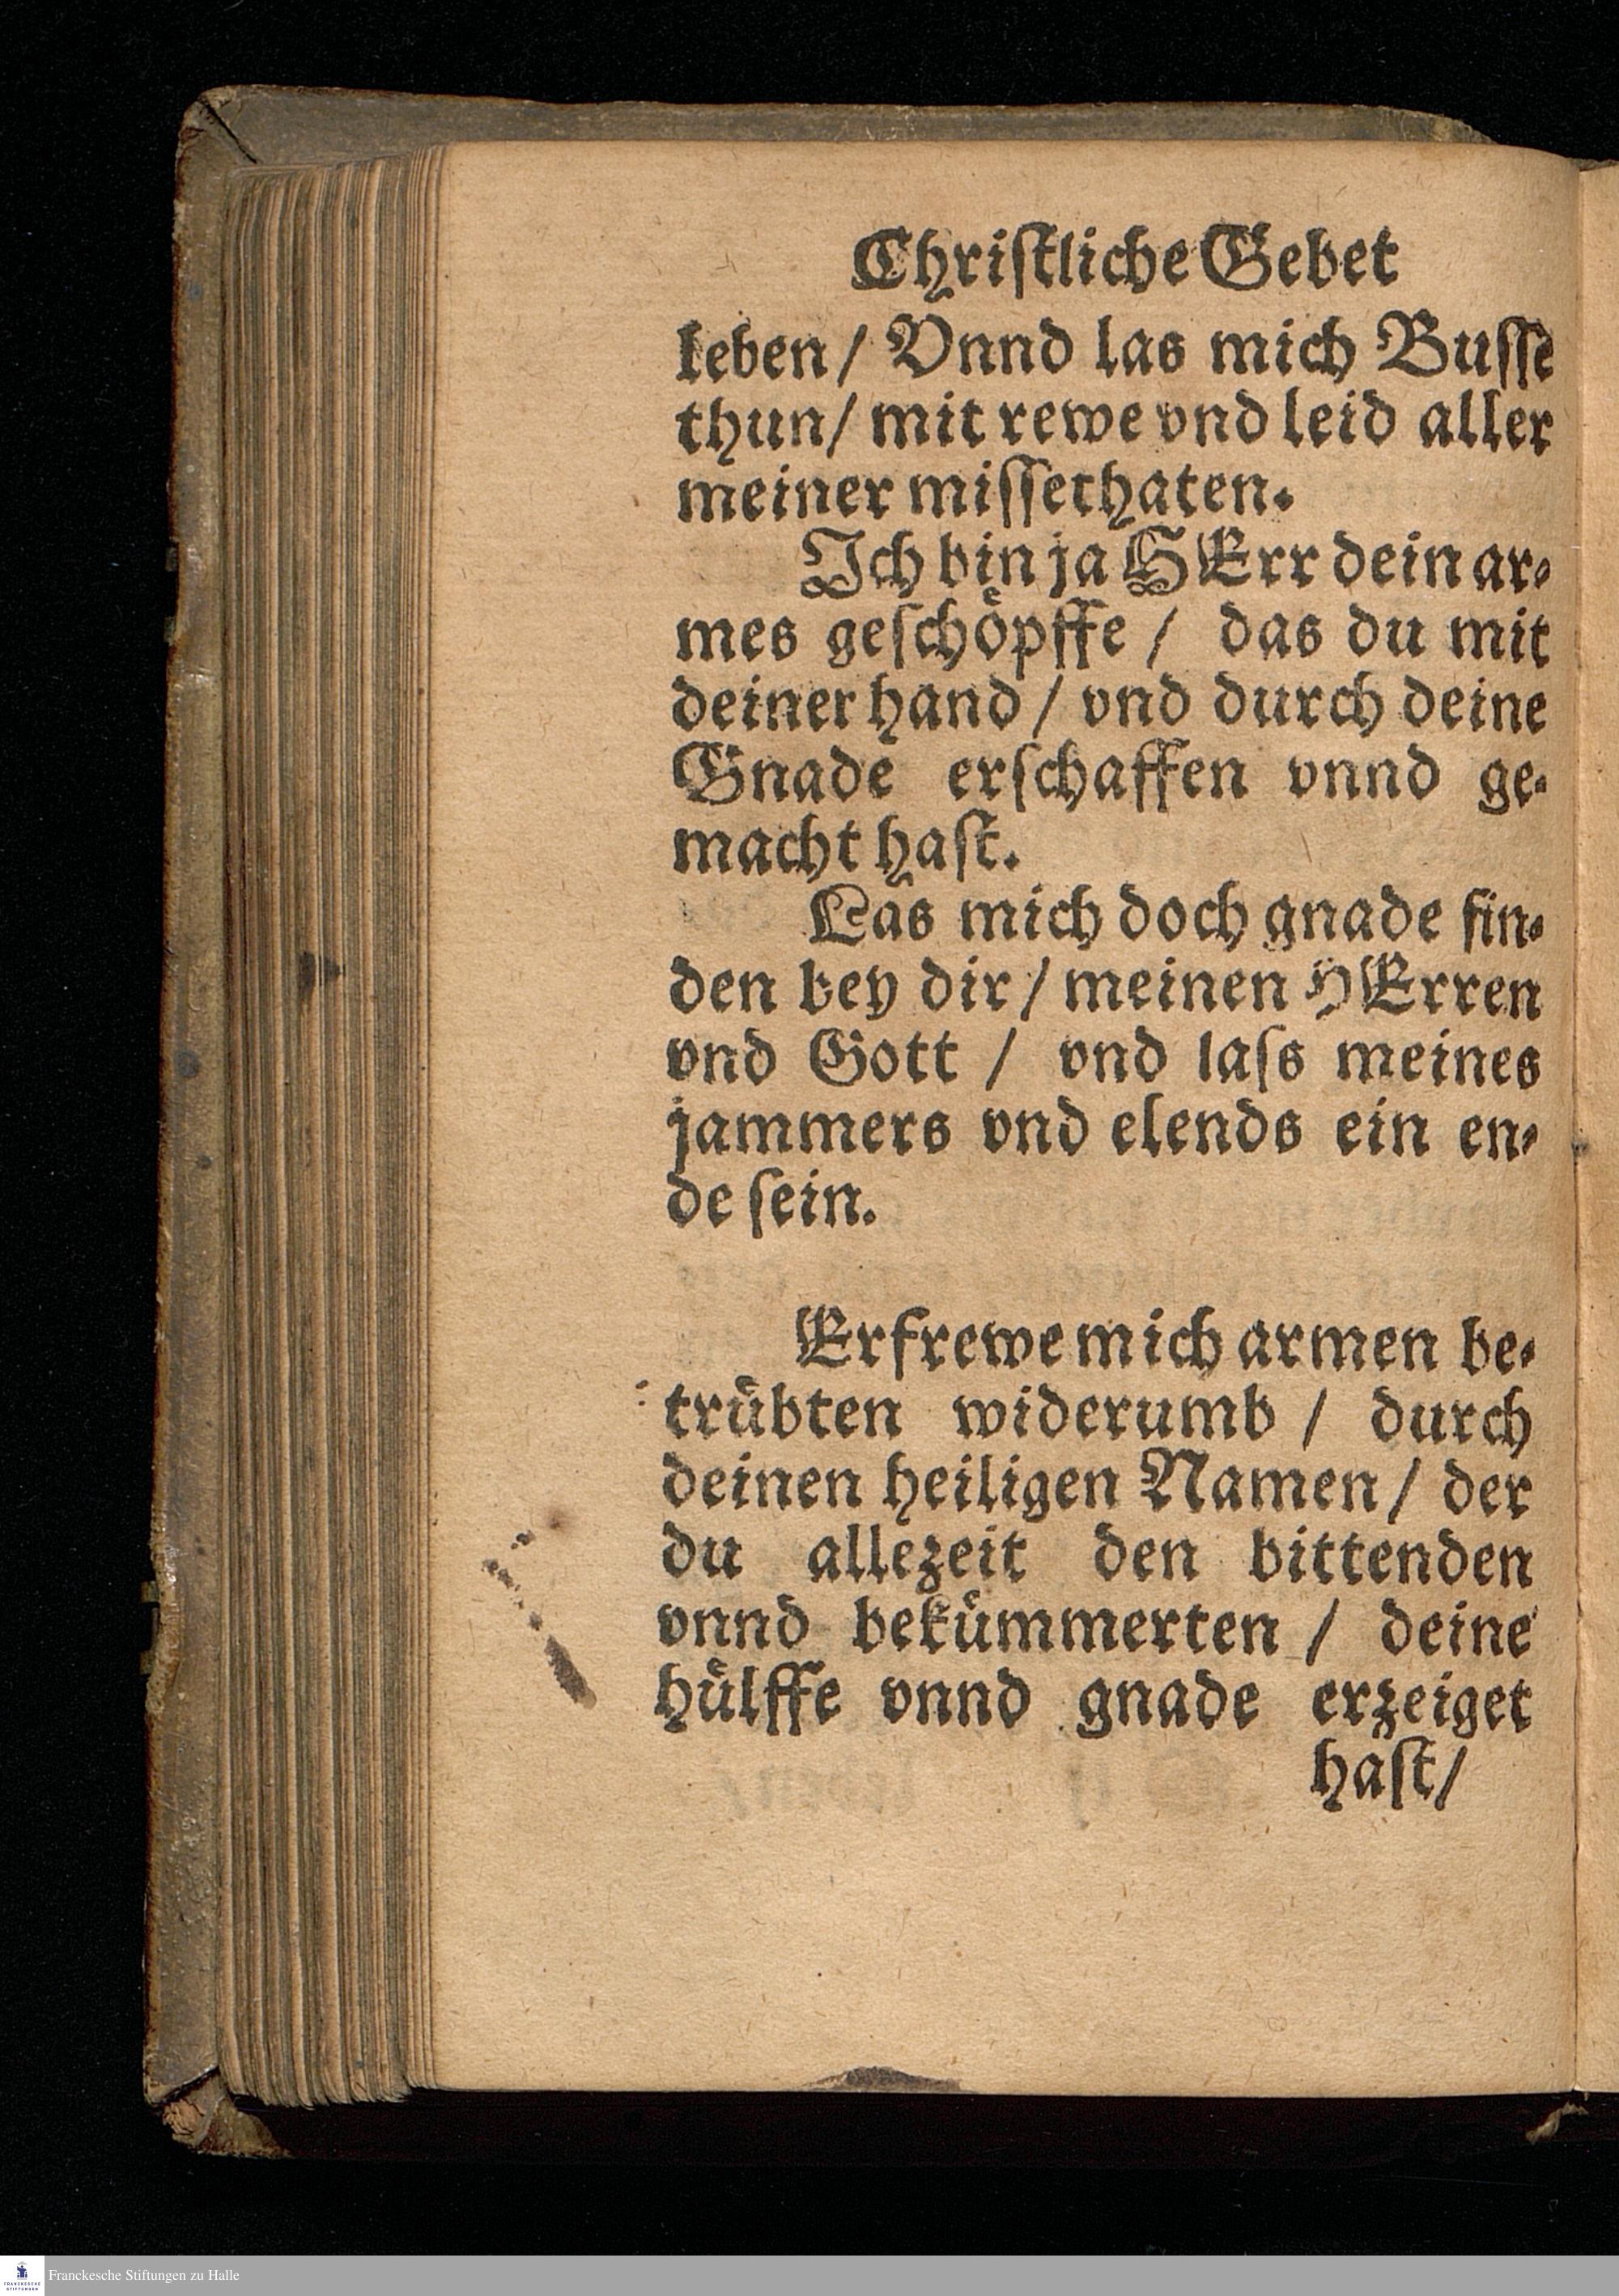 Chriſtliche Gebet
leben / Vnnd las mich Buſſe
thun / mit rewe vnd leid aller
meiner miſſethaten.
Ich bin ja HErr dein ar⸗
mes geſchoͤpffe / das du mit
deiner hand / vnd durch deine
Gnade erſchaffen vnnd ge⸗
macht haſt.
Las mich doch gnade fin⸗
den bey dir / meinen HErren
vnd Gott / vnd laſs meines
jammers vnd elends ein en⸗
de ſein.
Erfrewe mich armen be⸗
truͤbten widerumb / durch
deinen heiligen Namen / der
du allezeit den bittenden
vnnd bekuͤmmerten / deine
huͤlffe vnnd gnade erzeiget
haſt /
Franckesche Stiftungen zu Halle